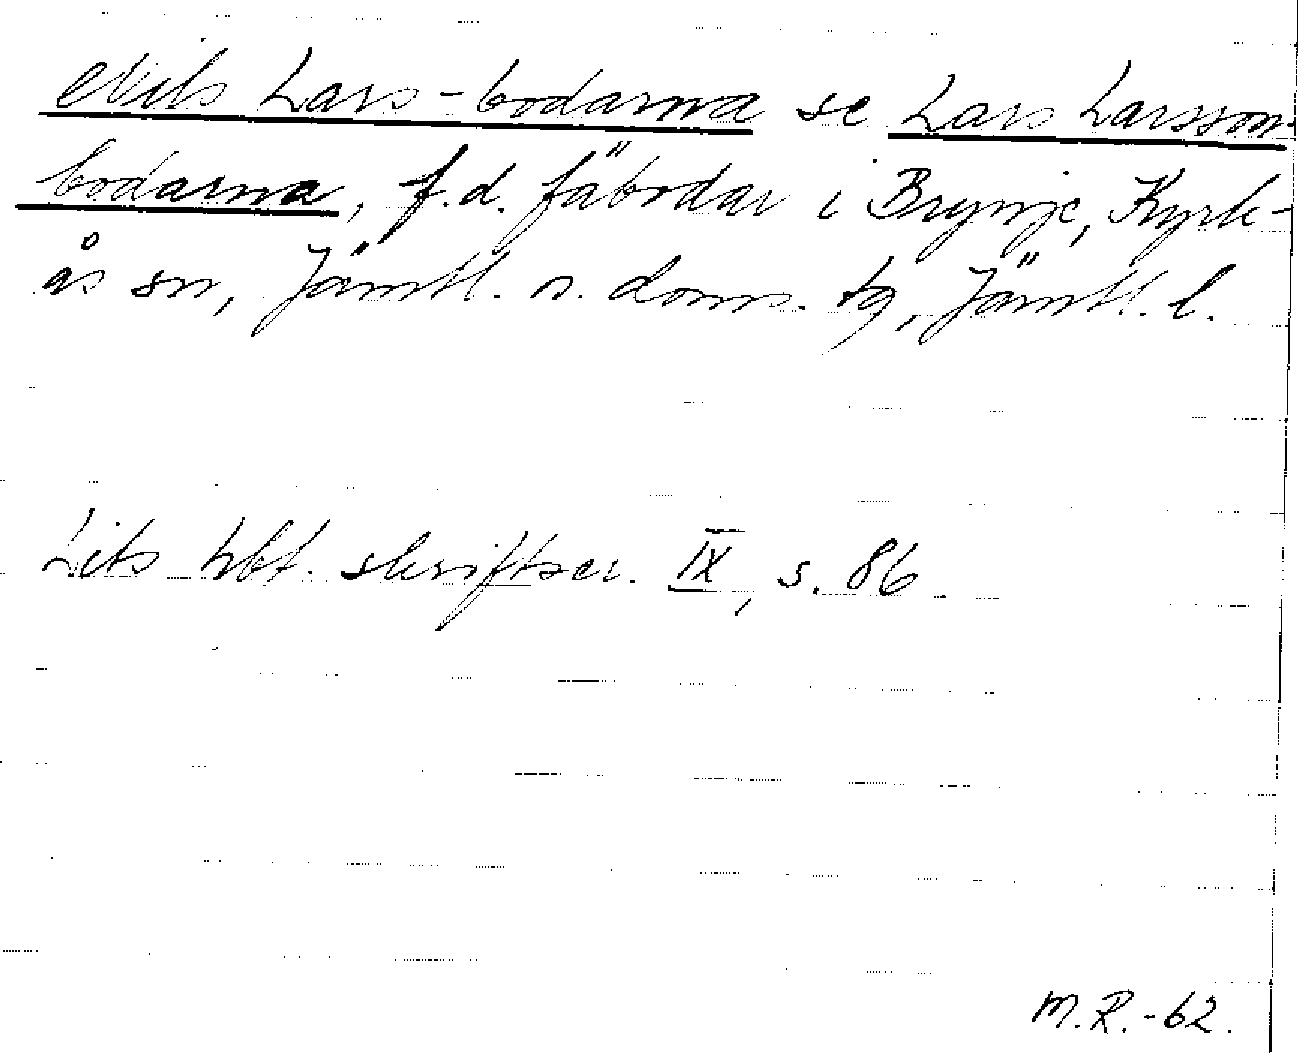 Nils Lars-bodarna se Lars Larsson-
bodarna, f.d. fäbodar i Brynje, Kyrk-
ås sn, Jämtl. n. doms. tg, Jämtl. l.
Lits hbf. skriftser. IX, s. 86
M.R.-62.